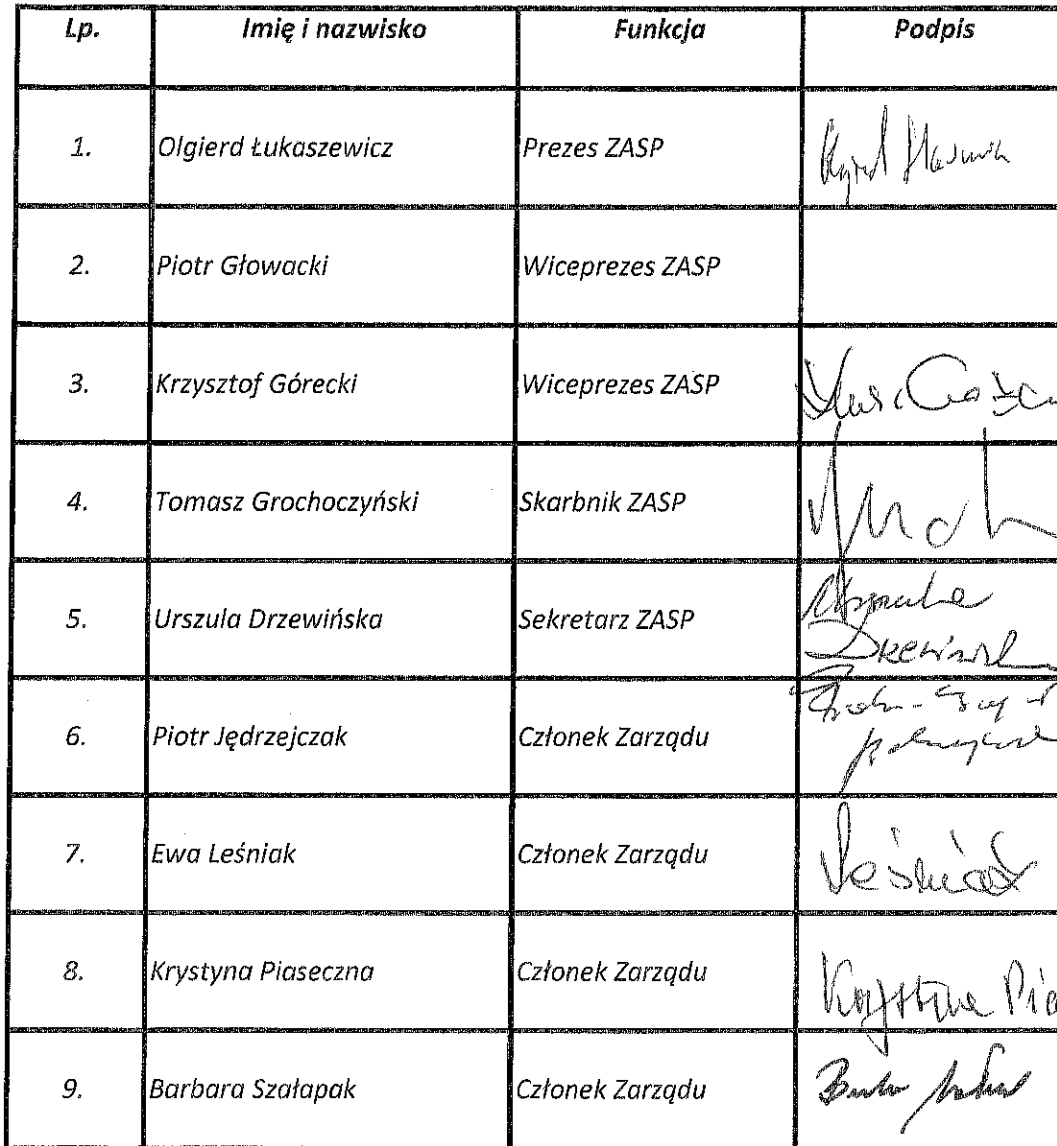 Lp. Imię i nazwisko Funkcja Podpis
1. Olgierd Łukaszewicz Prezes ZASP
2. Piotr Głowacki Wiceprezes ZASP
3. Krzysztof Górecki Wiceprezes ZASP
4. Tomasz Grochoczyński Skarbnik ZASP
5. Urszula Drzewińska Sekretarz ZASP
6. Piotr Jędrzejczak Członek Zarządu
7. Ewa Leśniak Członek Zarządu Leśniak
8. Krystyna Piaseczna Członek Zarządu Krystyna Pia
9. Barbara Szałapak Członek Zarządu